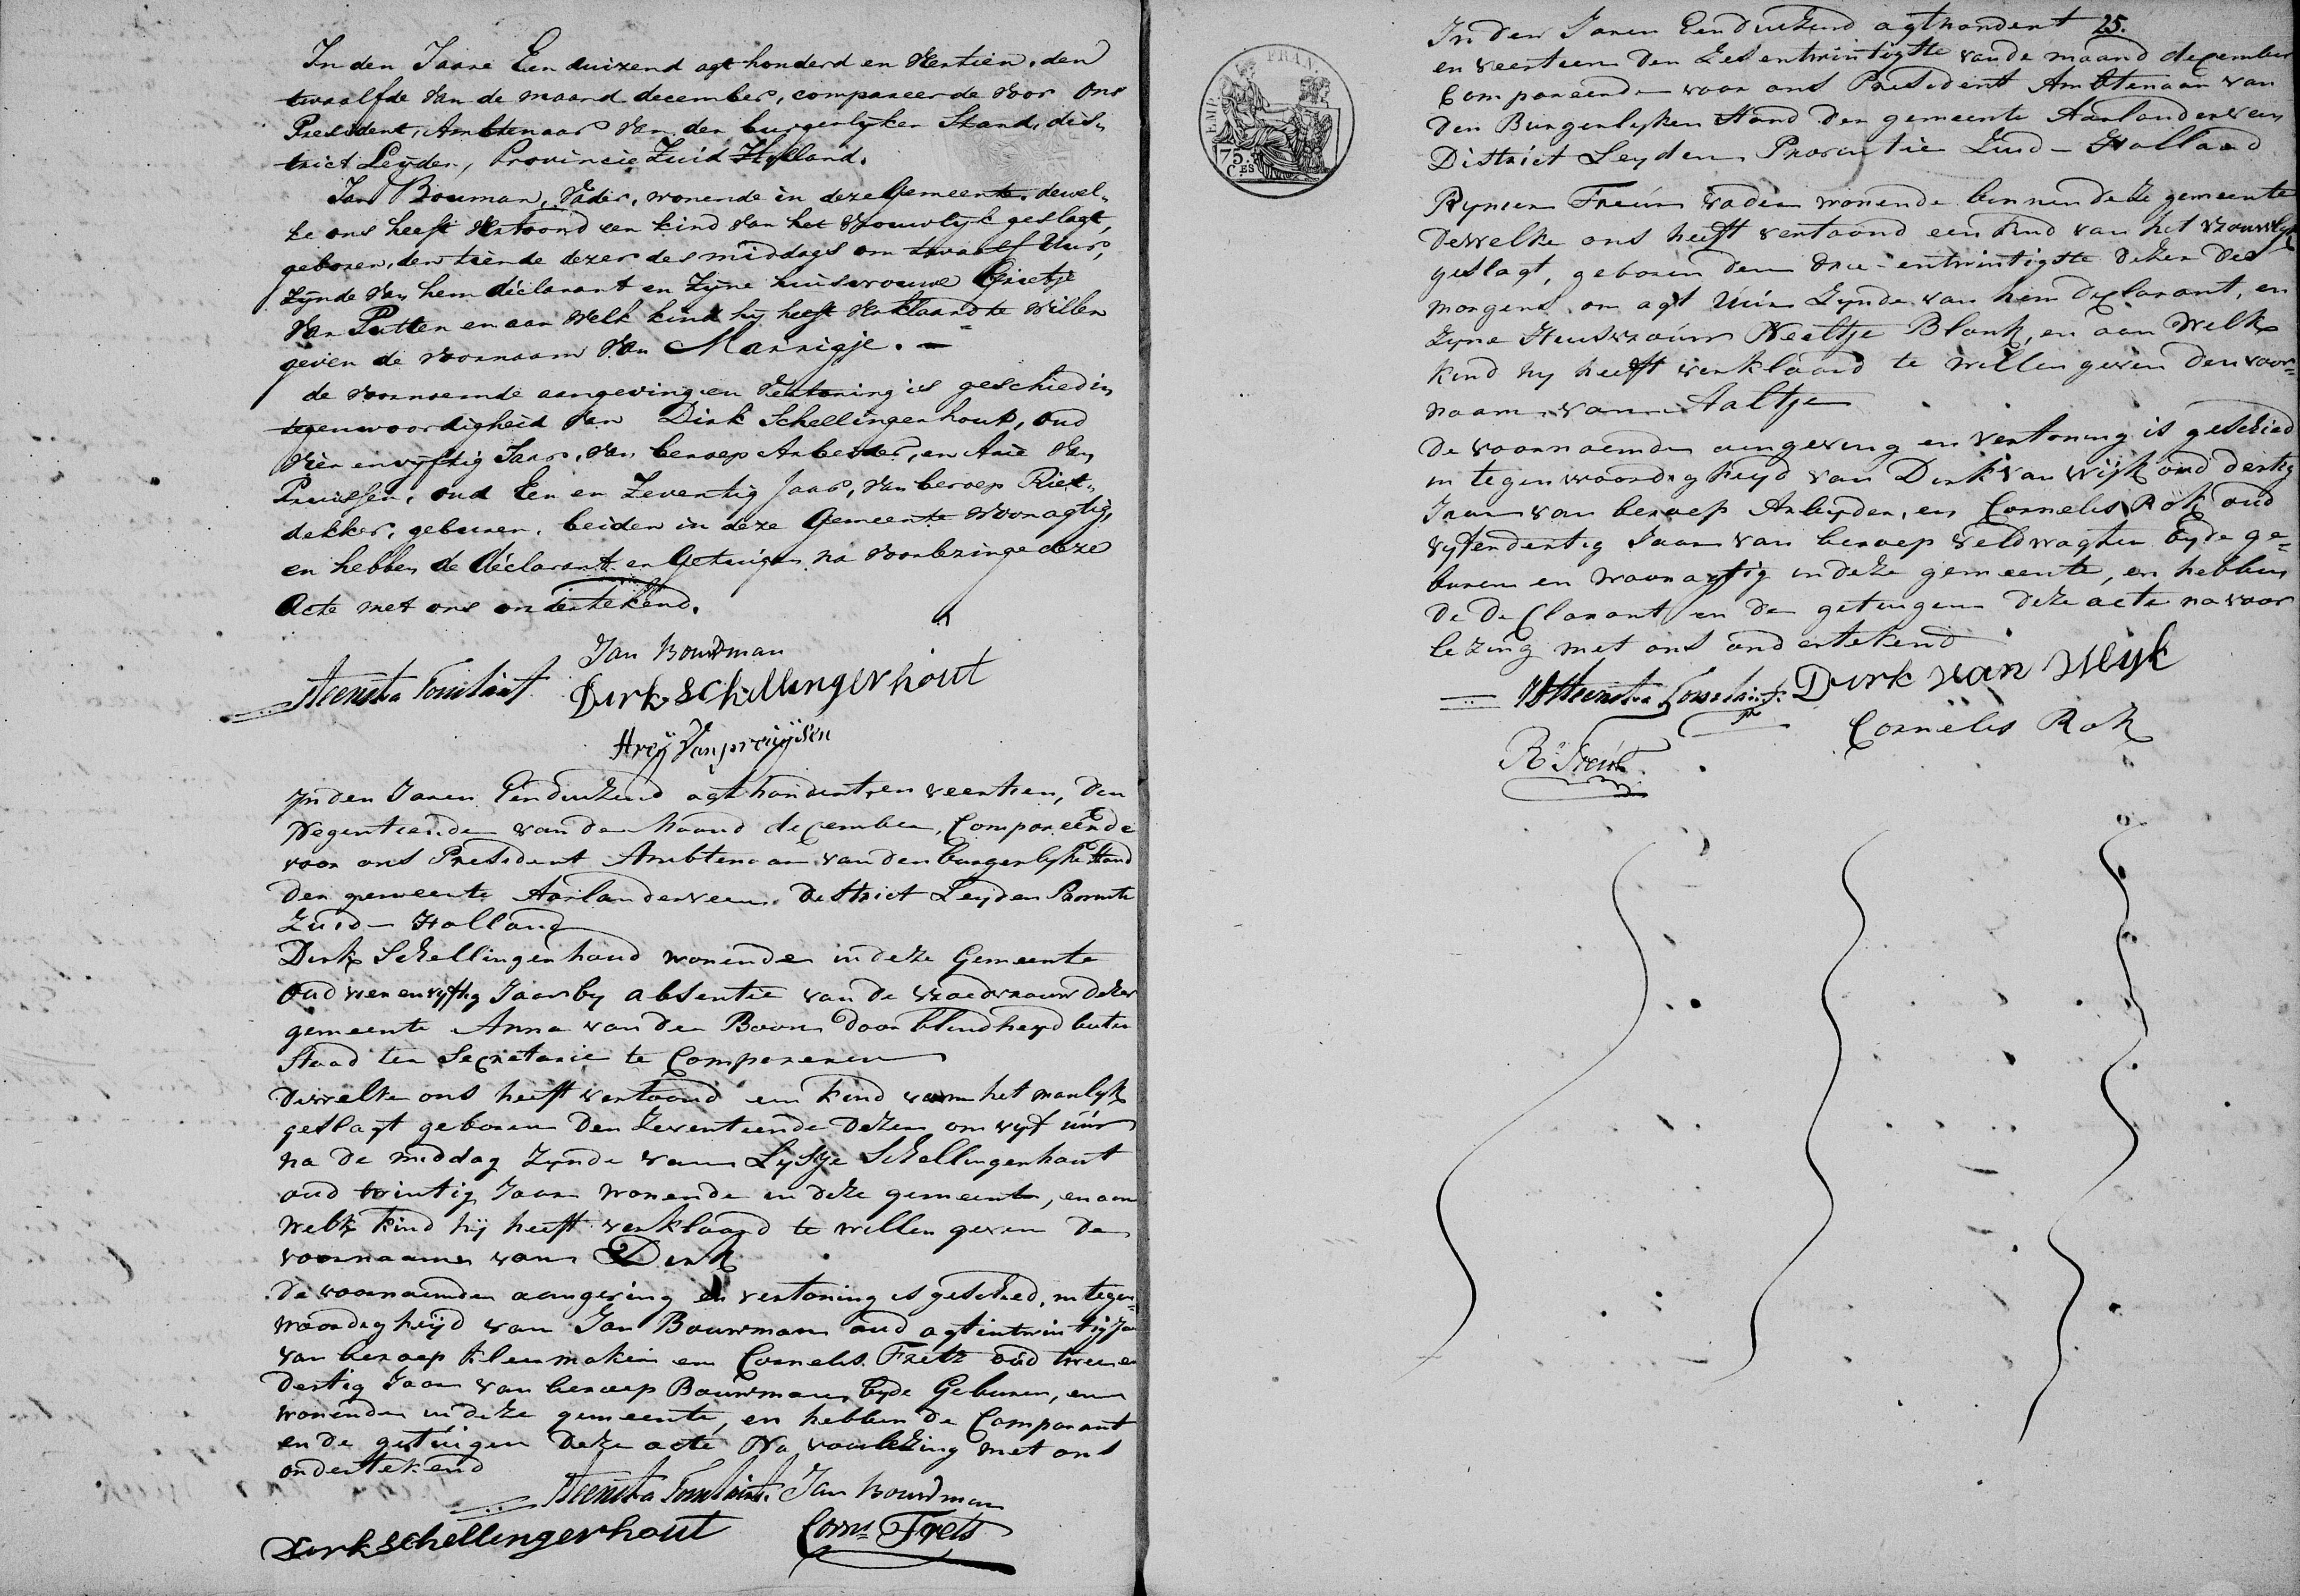 In den Jaare Een duizend agt honderd en Vertien, den
twaalfde van de maand december, compareerde voor Ons
President, Ambtenaar van den burgerlyken Stand, dis-
trict Leyden, Provincie Zuid Holland.
Jan Bouman, Vader, wonende in deze Gemeente, dewel-
ke ons heeft Vertoond een kind van het Vrouwlyk geslagt,
geboren, den tiende dezer des middags om twaalf Uur,
zynde van hem déclarant en Zyne huisvrouwe Grietje
van Putten en aan welk kind hy heeft Verklaard te willen
geven de voornaam van Marrigje.
de voornoemde aangeving en Vertoning is geschied in
tegenwoordigheid van Dirk Schellingerhout, oud
Vier en vyftig Jaar, van beroep Arbeider, en Arie van
Pruissen, oud Een en Zeventig Jaar, van beroep Riet-
dekker, geburen, beiden in deze Gemeente Woonagtig,
en hebben de déclarant en Getuigen na Voorlezinge deze
Acte met ons ondertekend.
Jan Bouwman
Steenstra Toussaint Dirk Schellingerhout
Areÿ Van pruÿsen
In den Jaren Eenduizend agthondert en veertien, den
Negentiende van de Maand december, Compareerde
voor ons President Ambtenaar van den burgerlyke Stand
der gemeente Aarlanderveen District Leyden Provintie
Zuid-Holland
Dirk Schellingerhoud wonende in deze Gemeente
Oud vier en vyftig Jaar by absentie van de Vroedvrouw dezer
gemeente Anna van der Boom door blindheyd buten
Staad ter Secretarie te Compareren
Dewelke ons heeft vertoond een kind van het manlyk
geslagt geboren den Zeventiende dezer om vyf uur
na de middag zynde van Lysje Schellingerhout
oud twintig Jaar wonende in deze gemeente, en aan
welk kind hij heeft verklaard te willen geven de
voornaame van Dirk
De voornoemden aangeving en vertoning is geschied, in tegen-
woordigheijd van Jan Bouwman oud agtentwintig Jaar
van beroep kleermaker en Cornelis Fretz oud twee en
dertig Jaar van beroep Bouwman, byde Geburen, en
wonende in deze gemeente, en hebben de Comparant
en de getuigen deze acte Na voorlezing met ons
ondertekend
Steenstra Toussaint. Jan Bouwman
Dirk Schellingerhout Corns Frets
25.
In den Jaren Eenduizend agthondert
en veertien den Zesentwintigste van de maand december
Compareerde voor ons President Ambtenaar van
den Burgerlyken Stand der gemeente Aarlanderveen
District Leyden Provintie Zuid-Holland
EMP. FRAN.
75. CES
Rynier Freún vader wonende binnen deze gemeente
Dewelke ons heeft vertoond een kind van het vrouwlyk
geslagt, geboren den drie-entwintigste dezer des
morgens om agt Uur Zynde van hem declarant, en
Zyne Huisvrouw Neeltje Blonk, en aan Welk
kind hy heeft verklaard te willen geven den voor-
naam van Aaltje
De voornoemden aangeving en vertoning is geschied
in tegenwoordigheyd van Dirk van Wijk oud dertig
Jaar van beroep Arbeyder, en Cornelis Rok oud
vyfendertig Jaar van beroep veldwagter byde ge-
buren en woonagtig in deze gemeente, en hebben
de declarant en de getuigen deze acte na voor
lezing met ons ondertekend
Steenstra Toussaint. Dirk van Wijk
Cornelis Rok